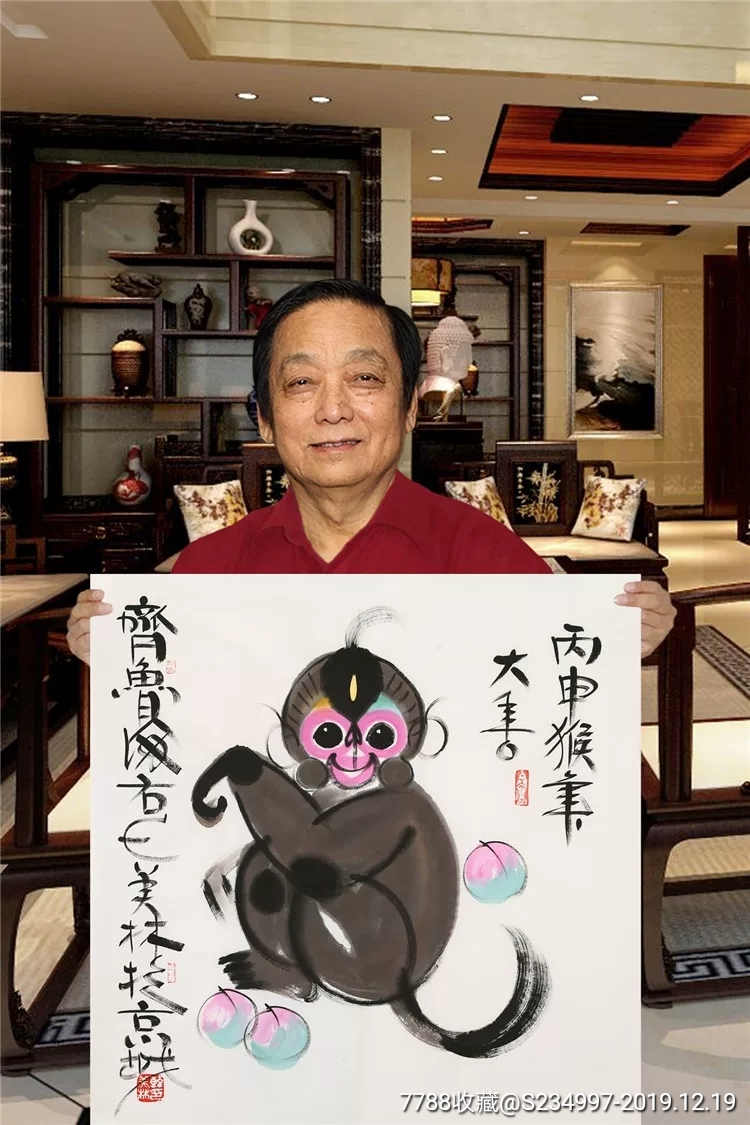 丙申猴年
大吉
齊魯海右美林於京城
7788收藏@S234997-2019.12.19